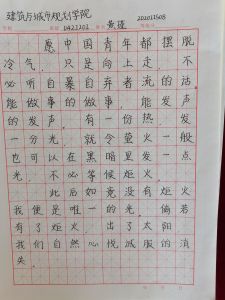 建筑与城市规划学院
班级 U422102 姓名 黄 202011508
愿中国青年都摆脱
冷气,只是向上走,不
必听自暴自弃者流的话。
能做事的做事,能发声
的发声。有一份热,发
一分光,就令萤火一般,
也可以在黑暗里发一点
光,不必等候炬火。
此后如竟没有炬火,
我便是唯一的光。倘若
有了炬火,出了太阳,
我们自然心悦诚服的消
失。